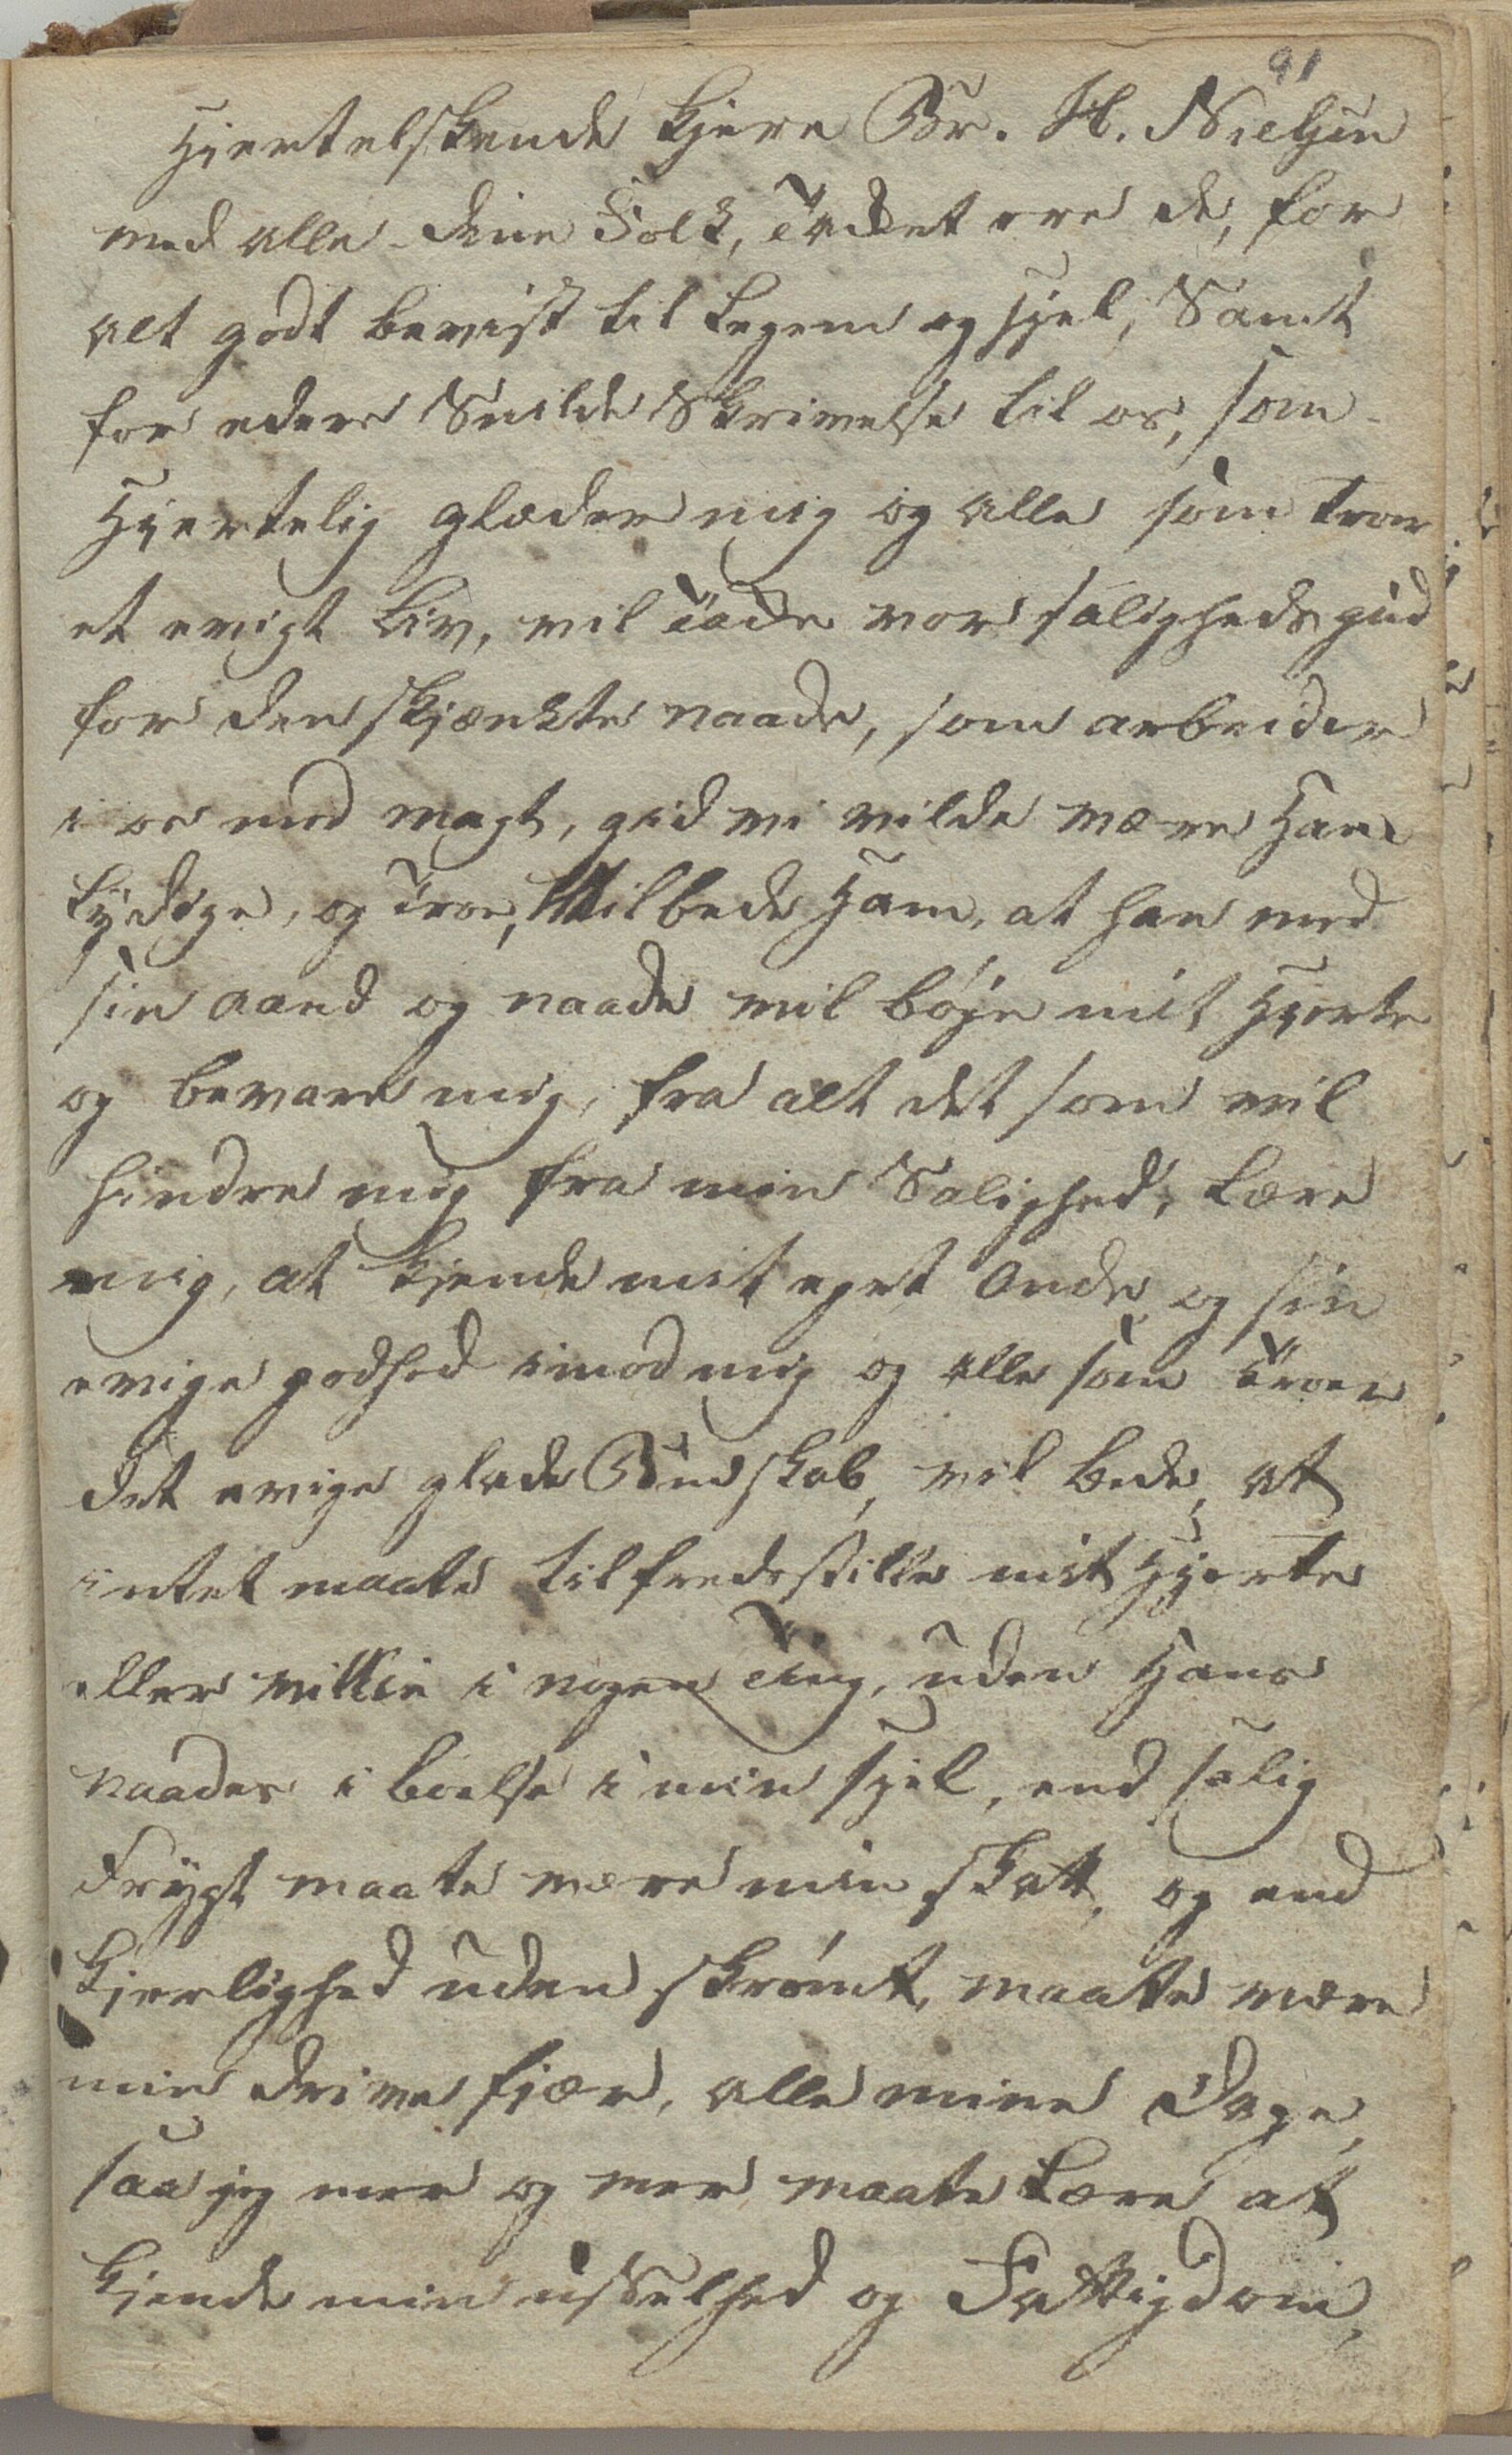 91
Hjertelskende kjere Br. H. Nielsen
med alle dine Folk, Takket vere de, for
alt godt bevist til Legem og sjel, Samt
for eders Snilde Skrivelse til os, som
Hjertelig glæder mig og alle som troer
et evigt Liv, vil Takke vor saligheds gud
for den skjænkte naade, som arbeider
i os med magt, gid vi vilde være Ham
Lydige, og Troe, Vil bede Ham, at han med
sin aand og naade vil bøje mit Hjerte
og bevare mig, fra alt det som vil
hindre mig fra min Salighed, Lære
mig, at kjende mit eget Onde og sin
evige godhed imod mig og alle som Troer
det evige glade Budskab, vil bede, at
intet maate tilfredsstille mit Hjerte
eller villie i nogen Ting, uden Hans
naades i boelse i min sjel, end salig
Frygt maate være min skatt, og end
Kjerlighed uden skrømt, maate være
min drive fjær, alle mine Dage,
saa jeg mer og mer maate Lære at
kjende min usselhed og Fattigdom,